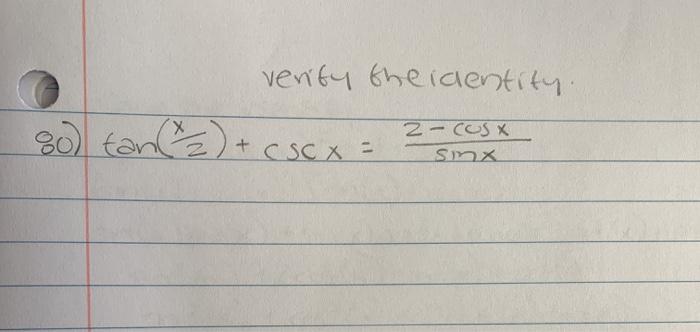 verify the identity.
80) tan(x/2) + csc x = 2 - cos x / sin x